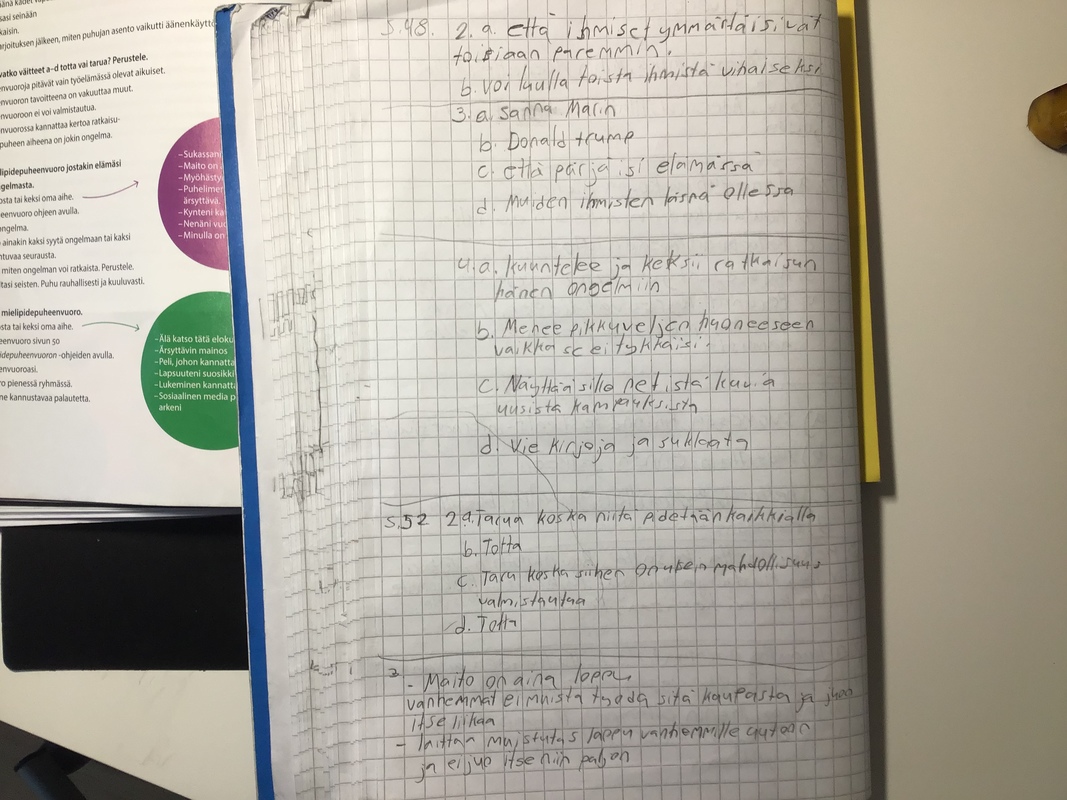 änä kädet
sasi seinään
kaisin.
rjoituksen jälkeen, miten puhujan asento vaikutti äänenkäyttö
vatko väitteet a–d totta vai tarua? Perustele.
nvuoroja pitävät vain työelämässä olevat aikuiset.
nvuoron tavoitteena on vakuuttaa muut.
nvuoroon ei voi valmistautua.
nvuorossa kannattaa kertoa ratkaisu-
puheen aiheena on jokin ongelma.
lipidepuheenvuoro jostakin elämäsi
gelmasta.
osta tai keksi oma aihe.
eenvuoro ohjeen avulla.
ongelma.
ainakin kaksi syytä ongelmaan tai kaksi
ntuvaa seurausta.
miten ongelman voi ratkaista. Perustele.
itasi seisten. Puhu rauhallisesti ja kuuluvasti.
mielipidepuheenvuoro.
sta tai keksi oma aihe.
eenvuoro sivun 50
idepuheenvuoron -ohjeiden avulla.
envuoroasi.
ro pienessä ryhmässä.
ne kannustavaa palautetta.
–Sukassan
–Maito on
–Myöhästy
–Puhelimen
ärsyttävä.
–Kynteni ka
–Nenäni vuo
–Minulla on
–Älä katso tätä eloku
–Ärsyttävin mainos
–Peli, johon kannatta
–Lapsuuteni suosikki
–Lukeminen kannatt
–Sosiaalinen media p
arkeni
S.48. 2. a. että ihmiset ymmärtäisivät
toisiaan paremmin.
b. voi luulla toista ihmistä vihaiseksi
3. a. Sanna Marin
b. Donald trump
c. että pärjäisi elämässä
d. Muiden ihmisten läsnä ollessa
4. a. kuuntelee ja keksii ratkaisun
hänen ongelmiin
b. Menee pikkuveljen huoneeseen
vaikka se ei tykkäisi.
c. Näyttää sille netistä kuvia
uusista kampauksista
d. Vie kirjoja ja suklaata
S.52 2a. Tarua koska niitä pidetään kaikkialla
b. Totta
c. Taru koska siihen on mahdollisuus
valmistautua
d. Totta
3
- Maito on aina loppu
vanhemmat ei muista tuoda sitä kaupasta ja juon
itse liikaa
- laittaa muistutus lappu vanhemmille autoon
ja ei juo itse niin paljon